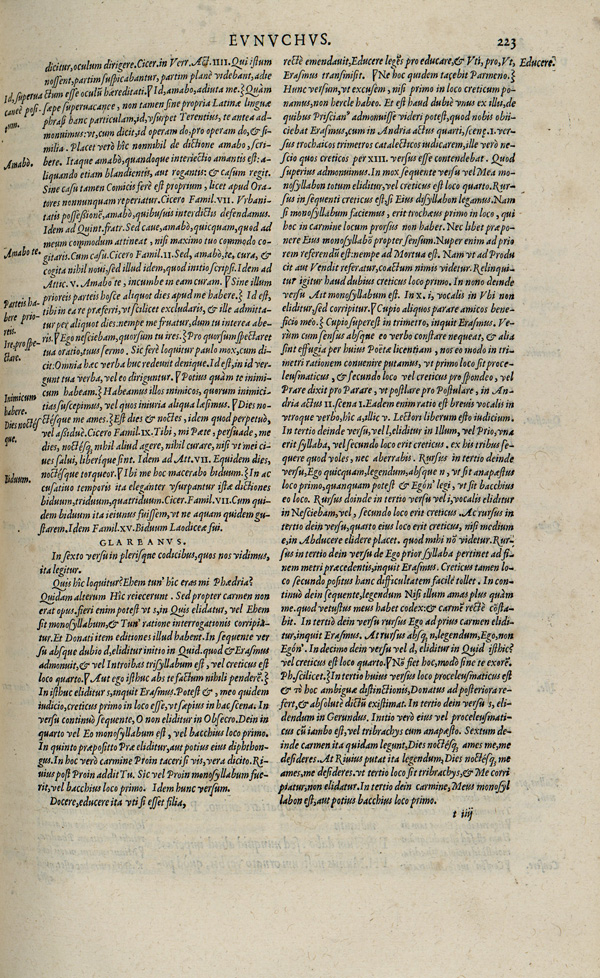 EVNVCHVS. 223
dicitur, oculum dirigere. Cicer. in Verr. Act. IIII. Qui istum
nossent, partim suspicabantur, partim planè videbant, adie
ctum esse oculū hæreditati. ¶Id, amabo, adiuta me.} Quàm
Id, superua
sæpe superuacance, non tamen sine propria Latinæ linguæ
canee posi-
tum.
phrasi hanc particulam, id, vsurpet Terentius, te antea ad-
monuimus: vt, cum dicit, id operam do, pro operam do, & si-
milia. Placet verò hîc nonnihil de dictione amabo, scri-
bere. Itaque amabò, quandoque interiectio amantis est: a-
Amabò.
liquando etiam blandientis, aut rogantis: & casum regit.
Sine casu tamen Comicis ferè est proprium, licet apud Ora-
tores nonnunquam reperiatur. Cicero Famil. VII. Vrbani-
tatis possessionē, amabò, quibusuis interdictis defendamus.
Idem ad Quint. fratr. Sed caue, amabò, quicquam, quod ad
meum commodum attineat, nisi maximo tuo commodo co-
gitaris. Cum casu. Cicero Famil. II. Sed, amabò, te, cura, &
Amabo te.
cogita nihil noui, sed illud idem, quod initio scripsi. Idem ad
Attic. V. Amabo te, incumbe in eam curam. ¶Sine illum
prioreis parteis hosce aliquot dies apud me habere.} Id est,
Parteis ha-
bere prio-
reis.
tibi in ea re præferri, vt scilicet excludaris, & ille admitta-
tur per aliquot dies: nempe me fruatur, dum tu interea abe-
ris. ¶Ego nesciebam, quorsum tu ires.} Pro quorsum spectaret
Ire, pro spe-
ctare.
tua oratio, tuus sermo. Sic ferè loquitur paulo mox, cum di-
cit: Omnia hæc verba huc redeunt denique. Id est, in id ver-
gunt tua verba, vel eo diriguntur. ¶Potius quàm te inimi-
cum habeam.} Habeamus illos inimicos, quorum inimici-
Inimicum
habere.
tias suscepimus, vel quos iniuria aliqua læsimus. ¶Dies no-
ctésque me ames.} Est dies & noctes, idem quod perpetuò,
Dies noctés
que.
vel assiduè. Cicero Famil. IX. Tibi, mi Pæte, persuade, me
dies, noctésq, nihil aliud agere, nihil curare, nisi vt mei ci-
ues salui, liberíque sint. Idem ad Att. VII. Equidem dies,
noctésque torqueor. ¶Ibi me hoc macerabo biduum.} In ac
Biduum.
cusatiuo temporis ita eleganter vsurpantur istæ dictiones
biduum, triduum, quatriduum. Cicer. Famil. VII. Cum qui-
dem biduum ita ieiunus fuissem, vt ne aquam quidem gu-
starem. Idem Famil. XV. Biduum Laodiceæ fui.
GLAREANVS.
In sexto versu in plerisque codicibus, quos nos vidimus,
ita legitur.
Quis hîc loquitur? Ehem tun' hîc eras mi Phædria?
Quidam alterum Hîc reiecerunt. Sed propter carmen non
erat opus. fieri enim potest vt s, in Quis elidatur, vel Ehem
fit monosyllabum, & Tun' ratione interrogationis corripia-
tur. Et Donati item editiones illud habent. In sequente ver
su absque dubio d, eliditur initio in Quid. quod & Erasmus
admonuit, & vel Introibas trisyllabum est, vel creticus est
loco quarto. ¶Aut ego istuc abs te factum nihili penderē.}
In istuc eliditur s, inquit Erasmus. Potest &, meo quidem
iudicio, creticus primo in loco esse, vt sæpius in hac scena. In
versu continuò sequente, O non eliditur in Obsecro. Dein in
quarto vel Eo monosyllabum est, vel bacchius loco primo.
In quinto præpositio Præ eliditur, aut potius eius diphthon-
gus. In hoc verò carmine Proin tacersi vis, vera dicito. Ri-
uius post Proin addit Tu. Sic vel Proin monosyllabum fue-
rit, vel bacchius loco primo. Idem hunc versum.
Docere, educere ita vti si esset filia,
rectè emendauit, Educere legēs pro educare, & Vti, pro, Vt,
Educere.
Erasmus transmisit. ¶Ne hoc quidem tacebit Parmeno.}
Hunc versum, vt excusem, nisi primo in loco creticum po-
namus, non hercle habeo. Et est haud dubiè vnus ex illis, de
quibus Priscian' admonuisse videri potest, quod nobis obii-
ciebat Erasmus, cum in Andria actus quarti, scene. I. ver-
sus trochaicos trimetros catalecticos iudicarem, ille verò ne-
scio quos creticos per XIII. versus esse contendebat. Quod
superius admonuimus. In mox sequente versu vel Mea mo-
nosyllabon totum eliditur, vel creticus est loco quarto. Rur-
sus in sequenti creticus est, si Eius disyllabon legamus. Nam
si monosyllabum faciemus, erit trochæus primo in loco, qui
hoc in carmine locum prorsus non habet. Nec libet præpo-
nere Eius monosyllabō propter sensum. Nuper enim ad prio
rem referendū est: nempe ad Mortua est. Nam vt ad Produ
cit aut Vendit referatur, coactum nimis videtur. Relinqui-
tur igitur haud dubiè creticus loco primo. In nono deinde
versu Ait monosyllabum est. In X. i, vocalis in Vbi non
eliditur, sed corripitur. ¶Cupio aliquos parare amicos bene-
ficio meo.} Cupio superest in trimetro, inquit Erasmus. Ve-
rùm cum sensus absque eo verbo constare nequeat, & alia
sint effugia per huius Poëtæ licentiam, nos eo modo in tri-
metri rationem conuenire putamus, vt primo loco sit proce-
leusmaticus, & secundo loco vel creticus pro spondeo, vel
Prare dixit pro Parare, vt postlare pro Postulare, in An-
dria actus II. scena I. Eadem enim ratio est breuis vocalis in
vtroque verbo, hîc a, illic v. Lectori liberum esto iudicium.
In tertio deinde versu, vel l, eliditur in Illum, vel Prio, vna
erit syllaba, vel secundo loco erit creticus. ex his tribus se-
quere quod voles, nec aberrabis. Rursus in tertio deinde
versu, Ego quicquam, legendum, absque n, vt sit anapæstus
loco primo, quanquam potest & Egón' legi, vt sit bacchius
eo loco. Rursus deinde in tertio versu vel i, vocalis eliditur
in Nesciebam, vel, secundo loco erit creticus. At rursus in
tertio dein versu, quarto eius loco erit creticus, nisi medium
e, in Abducere elidere placet. quod mihi nō videtur. Rur-
sus in tertio dein versu de Ego prior syllaba pertinet ad fi-
nem metri præcedentis, inquit Erasmus. Creticus tamen lo-
co secundo positus hanc difficultatem facilè tollet. In con-
tinuò dein sequente, legendum Nisi illum amas plus quàm
me. quod vetustus meus habet codex: & carmē rectè cōsta-
bit. In tertio dein versu rursus Ego ad prius carmen elidi-
tur, inquit Erasmus. At rursus absq, n, legendum, Ego, non
Egón'. In decimo dein versu vel d, eliditur in Quid istuc?
vel creticus est loco quarto. ¶Nō fiet hoc, modò sine te exorē.
Ph. scilicet.} In tertio huius versus loco proceleusmaticus est
& rò hoc ambiguæ distinctionis, Donatus ad posteriora re-
fert, & absolutè dictū existimat. In tertio dein versu s, eli-
dendum in Gerundus. Initio verò eius vel proceleusmati-
cus cū iambo est, vel tribrachys cum anapæsto. Sextum de-
inde carmen ita quidam legunt, Dies noctésq, ames me, me
desideres. At Riuius putat ita legendum, Dies noctésq, me
ames, me desideres. vt tertio loco sit tribrachys, & Me corri
piatur, non elidatur. In tertio dein carmine, Meus monosyl
labon est, aut potius bacchius loco primo.
t iiij